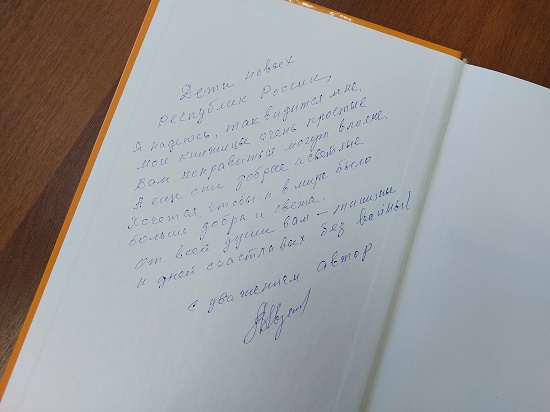 Дети новых
республик России,
Я надеюсь, так видится мне,
мои книжицы очень простые
Вам понравиться могут вполне.
А еще они добрые и светлые
Хочется, чтобы и в мире было
больше добра и света.
От всей души вам - тишины
и дней счастливых без войны!
с уважением автор